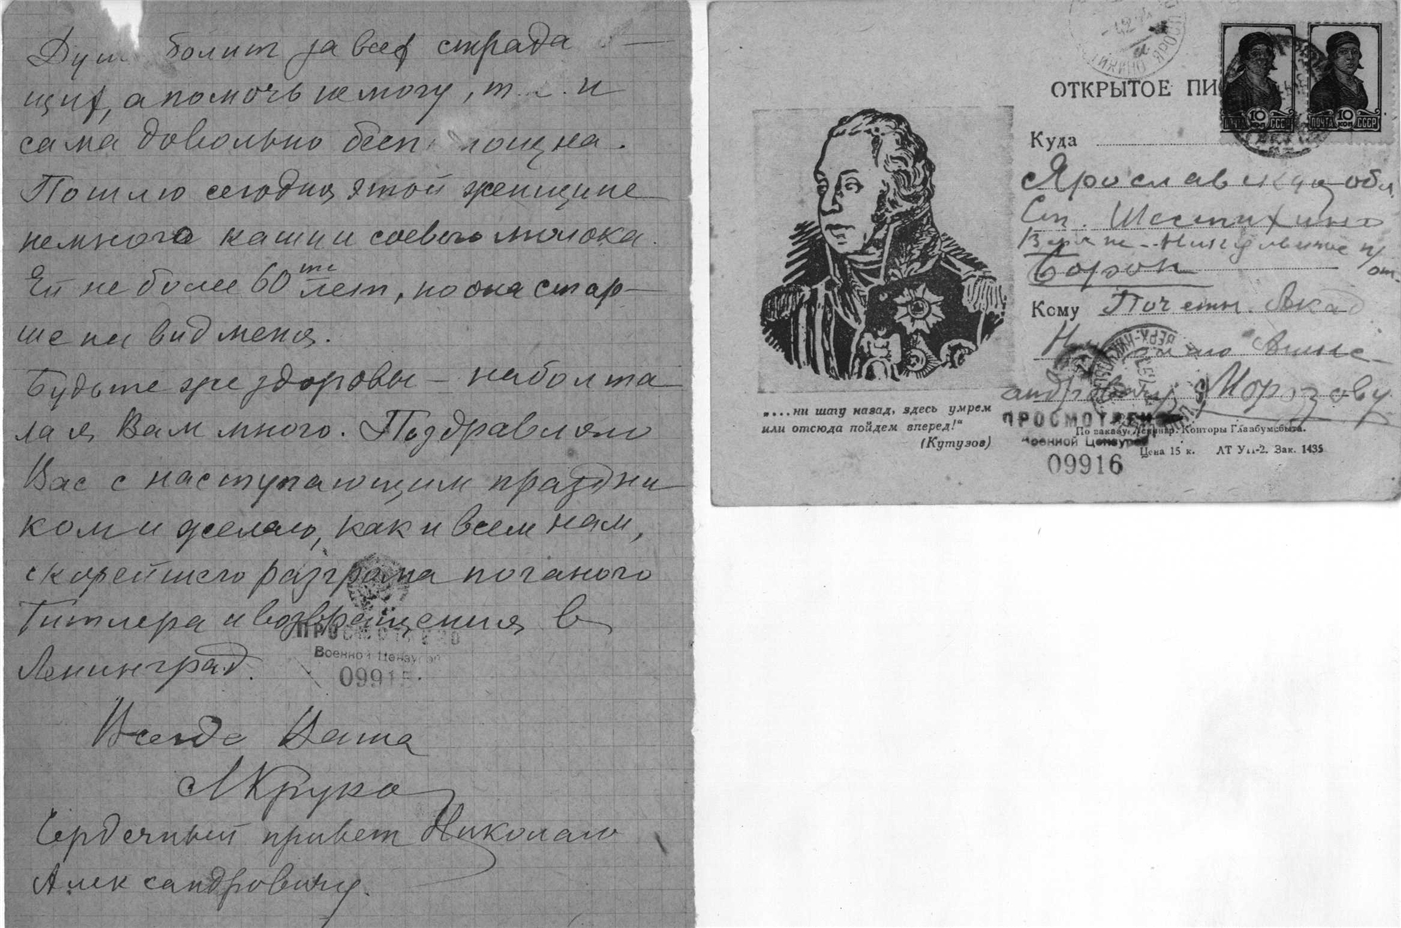 Душ болит за всех страда—
щих, а помочь не могу, т. и
сама довольно бесп мощна.
Пошлю сегодня этой женщине
немного каши и соевого молока.
Ей не более 60 ти лет, но она стар—
ше на вид меня.
Будьте же здоровы — наболта
ла я Вам много. Поздравляю
Вас с наступающим праздни
ком и желаю, как и всем нам,
скорейшего разгрома поганого
Гитлера и возвращения в
Ленинград.
ПРОСМОТРЕНО
Военной Цензурой
09915
Всегда Ваша
АКрука
Сердечный привет Николаю
Александровичу.
ОТКРЫТОЕ ПИ
ПОЧТА 10 КОП СССР
ПОЧТА 10 КОП СССР
Куда
Ярославская обл
Ст. Шестихино
Верхне-Никульское п/от
Борок
Кому Почетн. Акад
Николаю Алекс—
андровичу Морозову
„...ни шагу назад, здесь умрем
или отсюда пойдем вперед!“
(Кутузов)
ПРОСМОТРЕНО
Военной Цензурой
09916
По заказу Ленингр. Конторы Главбумсбыта.
Цена 15 к. ЛТ У11-2. Зак. 1435